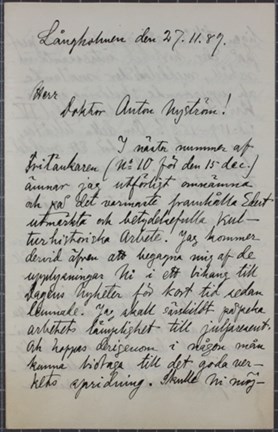 Långholmen den 27.11.89.
Herr
Doktor Anton Nyström!
I nästa nummer af
Fritänkaren (No 10 för den 15 dec.)
ämnar jag utförligt omnämna
och på det varmaste framhålla Edert
utmärkta och betydelsefulla kul-
turhistoriska Arbete. Jag kommer
dervid äfven att begagna mig af de
upplysningar Ni i ett bihang till
Dagens Nyheter för kort tid sedan
lemnade. Jag skall särskildt påpeka
arbetets lämplighet till juljpresent
och hoppas derigenom i någon mån
kunna bidraga till det goda ver-
kets spridning. Skulle Ni möj-